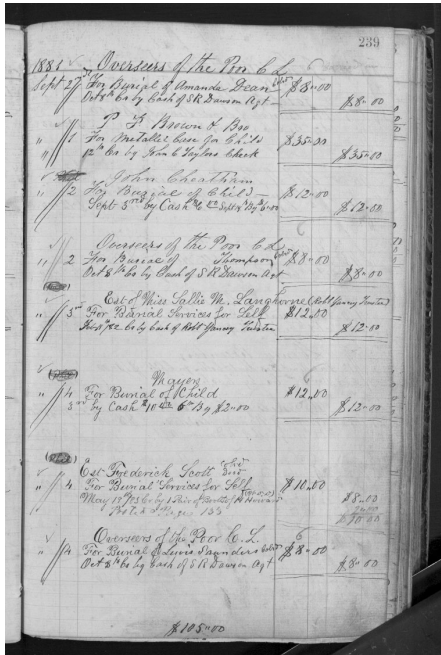 239
1881 Overseers of the Poor C L
Sept 2 For Burial of Amanda Dean Cold $8.00
Oct 8th Cr by Cash of S R Dawson Agt $8.00
P F Brown & Bro
" 1 For Metallic Case for Child $35.00
12th Cr by Check $35.00
John Cheatham
" 2 For Burial of Child $12.00
Sept 3rd by Cash $12.00
Overseers of the Poor C L
" 2 For Burial of Thompson Cold $8.00
Oct 8th Cr by Cash of S R Dawson Agt $8.00
Est of Miss Sallie M. Langhorne (Robt Yancey Trustee)
" 3 For Burial Services for Self $12.00
Cr by Cash of Robt Yancey Trustee $12.00
Mayer
" 4 For Burial of Child $12.00
3rd by Cash $10.00 6th By $2.00 $12.00
Est Frederick Scott
" 4 For Burial Services for Self $10.00
May $8.00
$10.00
Overseers of the Poor C. L. 6
" 4 For Burial of Lewis Saunders Cold $8.00
Oct 8th Cr by Cash of S R Dawson Agt $8.00
$105.00